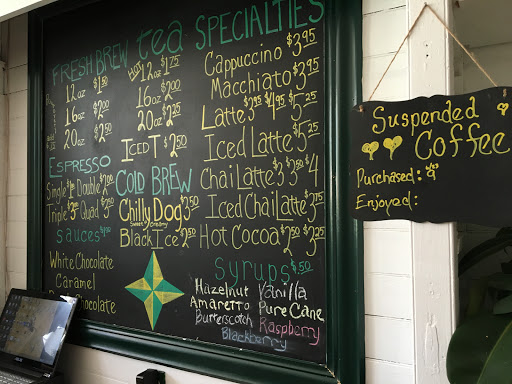 FRESH BREW
12oz $1.50
16oz $2.00
20oz $2.50
ESPRESSO
Single $1 Double $2.00
Triple $3 Quad $3.50
Sauces
White Chocolate
Caramel
Chocolate
tea
HOT
12oz $1.75
16oz $2.00
20oz $2.25
ICED T $2.50
COLD BREW
Chilly Dog $3.50
Sweet Creamy
Black Ice $2.50
SPECIALTIES
Cappuccino $3.95
Macchiato $3.95
Latte $3.95 $4.95 $5.25
Iced Latte $5.25
Chai Latte $3 $3.50 $4
Iced Chai Latte $3.75
Hot Cocoa $2.50 $3.25
Syrups $.50
Hazelnut Vanilla
Amaretto Pure Cane
Butterscotch Raspberry
Blackberry
Suspended
Coffee
Purchased:
Enjoyed: